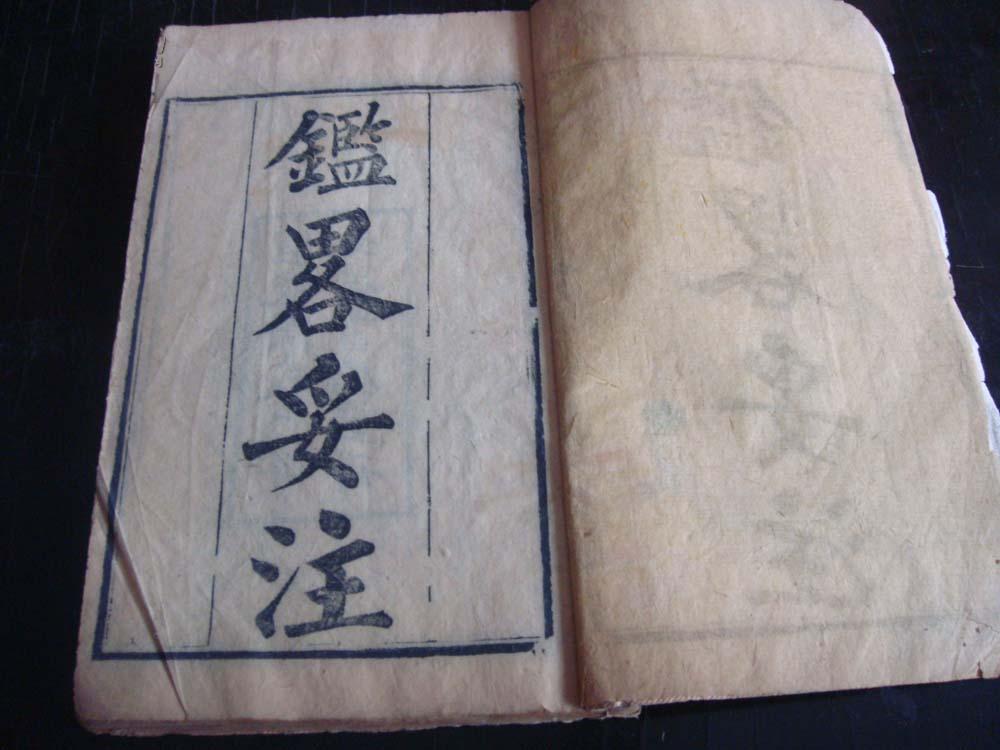 鑑畧妥注